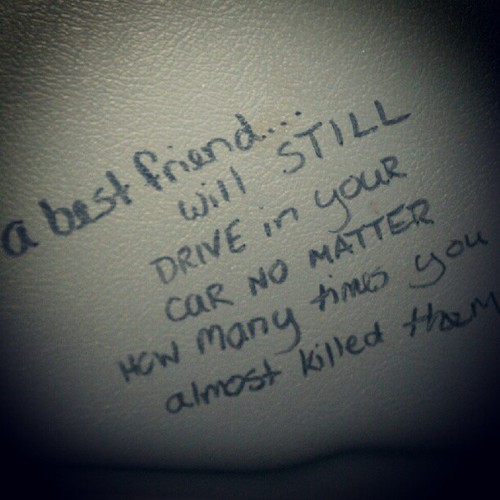 a best friend...
will STILL
DRIVE in your
CAR NO MATTER
HOW many times you
almost killed them